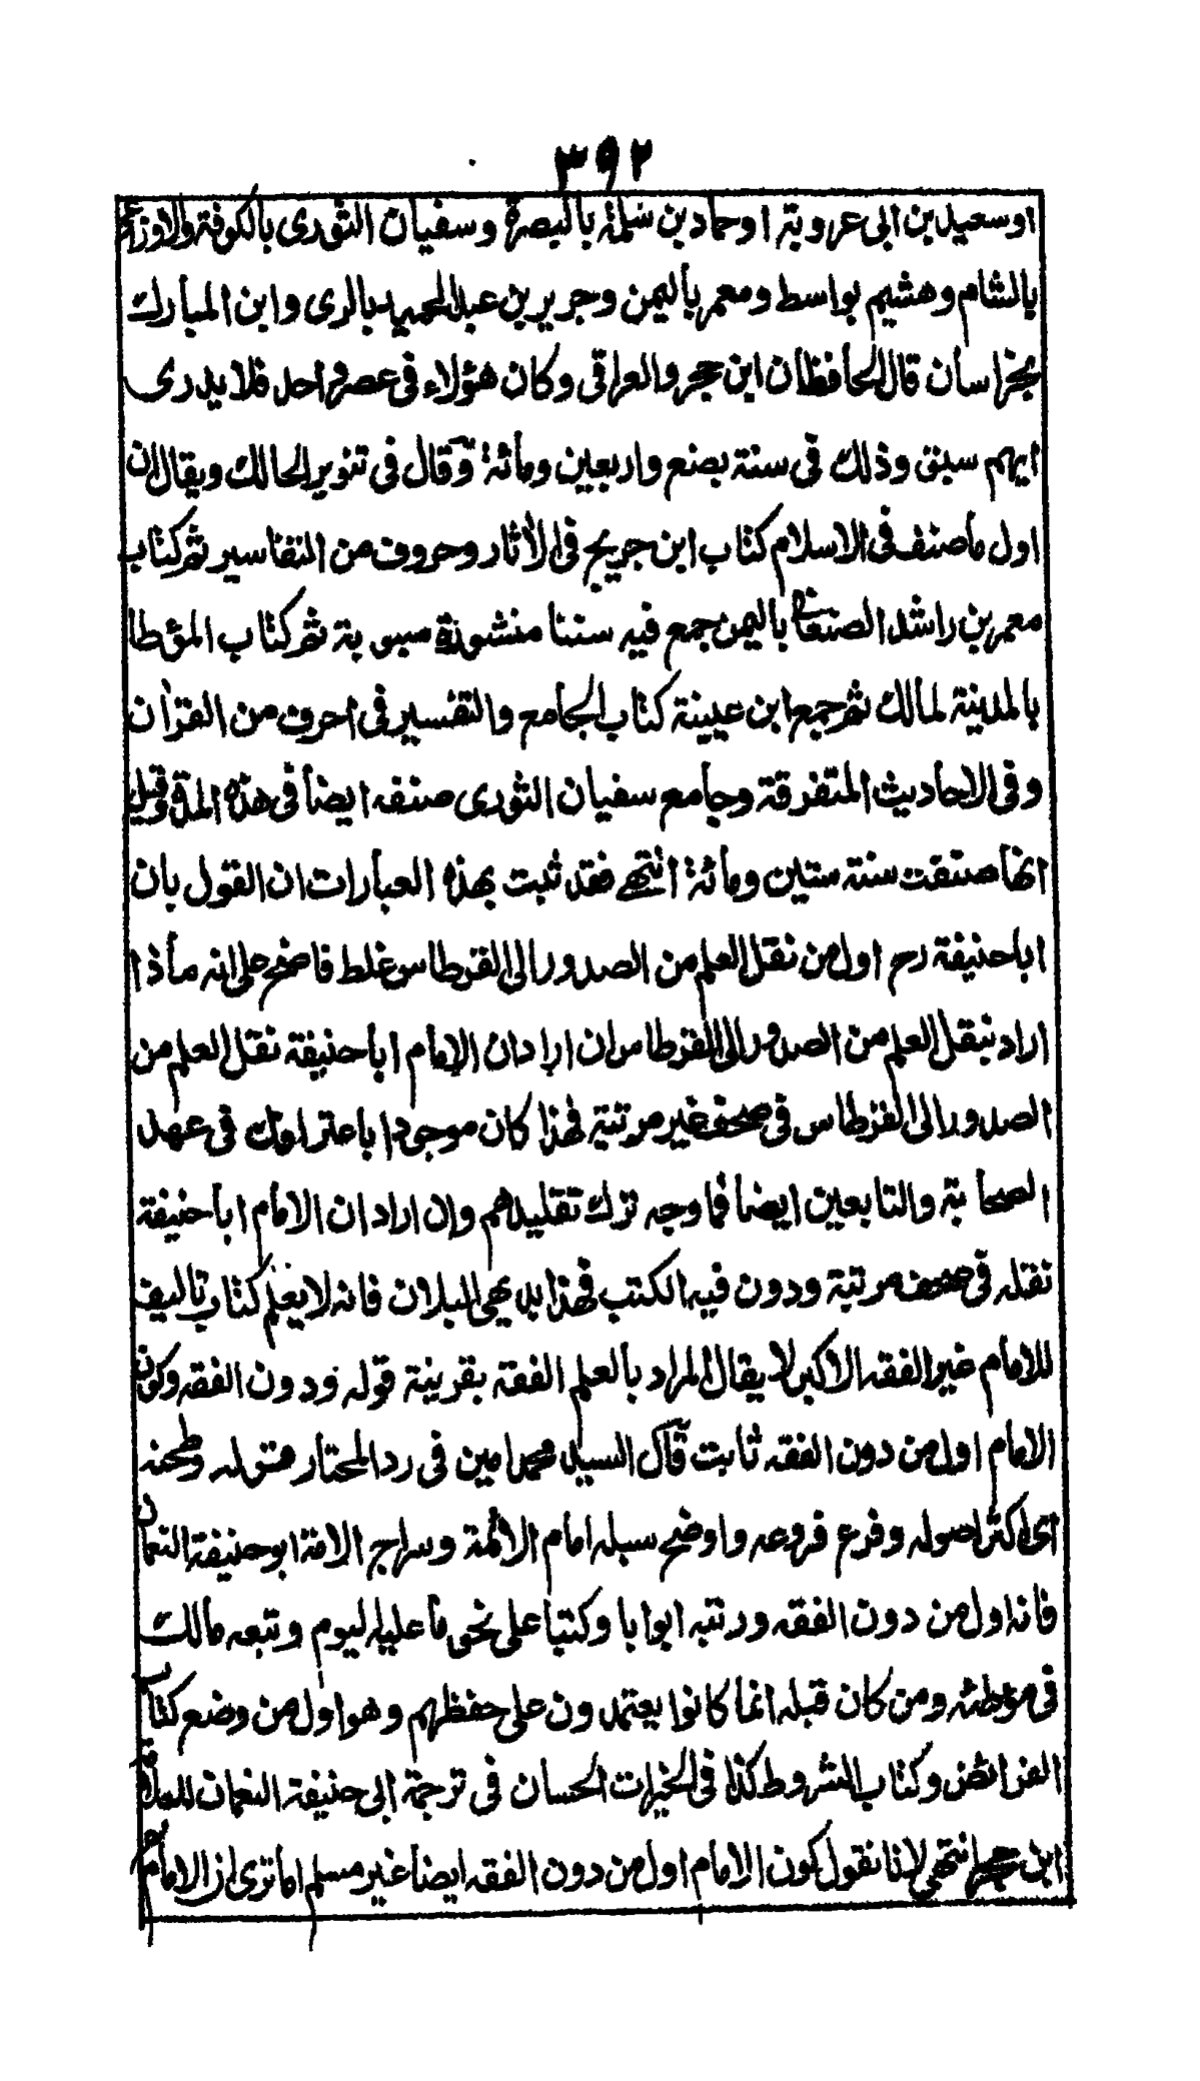 ٣٩٢
او سعيد بن ابى عروبة او حماد بن سلمة بالبصرة وسفيان الثورى بالكوفة والاوزاعى
بالشام وهشيم بواسط ومعمر باليمن وجرير بن عبد الحميد بالرى وابن المبارك
بخراسان قال الحافظان ابن حجر والعراقى وكان هؤلاء فى عصر واحد فلا يدرى
ايهم سبق وذلك فى سنة بضع واربعين ومائة وقال فى تنوير الحالك ويقال ان
اول ما صنف فى الاسلام كتاب ابن جريج فى الأثار وحروف من التفاسير ثم كتاب
معمر بن راشد الصنعانى باليمن جمع فيه سننا منشورة مبوبة ثم كتاب المؤطا
بالمدينة لمالك ثم جمع ابن عيينة كتاب الجامع والتفسير فى احرف من القرأن
وفى الاحاديث المتفرقة وجامع سفيان الثورى صنفه ايضا فى هذه المدة وقيل
انها صنفت سنة ستين ومائة انتهى فقد ثبت بهذه العبارات ان القول بان
اباحنيفة رح اول من نقل العلم من الصدور الى القرطاس غلط فاضح على انه ماذا
اراد بنقل العلم من الصدور الى القرطاس ان اراد ان الامام اباحنيفة نقل العلم من
الصدور الى القرطاس فى صحف غير مرتبة فهذا كان موجودا باعترافك فى عهد
الصحابة والتابعين ايضا فما وجه ترك تقليدهم وان اراد ان الامام اباحنيفة
نقله فى صحف مرتبة ودون فيه الكتب فهذا بديهى البطلان فانه لا يعلم كتاب تاليف
للامام غير الفقه الاكبر لا يقال المراد بالعلم الفقه بقرينة قوله ودون الفقه وكون
الامام اول من دون الفقه ثابت قال السيد محمد امين فى رد المحتار قوله وطحنه
اى اكثر اصوله وفرع فروعه واوضح سبله امام الائمة وسراج الامة ابو حنيفة النعمان
فانه اول من دون الفقه ورتبه ابوابا وكتبا على نحو ما عليه اليوم وتبعه مالك
فى موطئه ومن كان قبله انما كانوا يعتمدون على حفظهم وهو اول من وضع كتاب
الفرائض وكتاب الشروط كذا فى الخيرات الحسان فى ترجمة ابى حنيفة النعمان للعلامة
ابن حجر انتهى لانا نقول كون الامام اول من دون الفقه ايضا غير مسلم اما ترى ان الامام